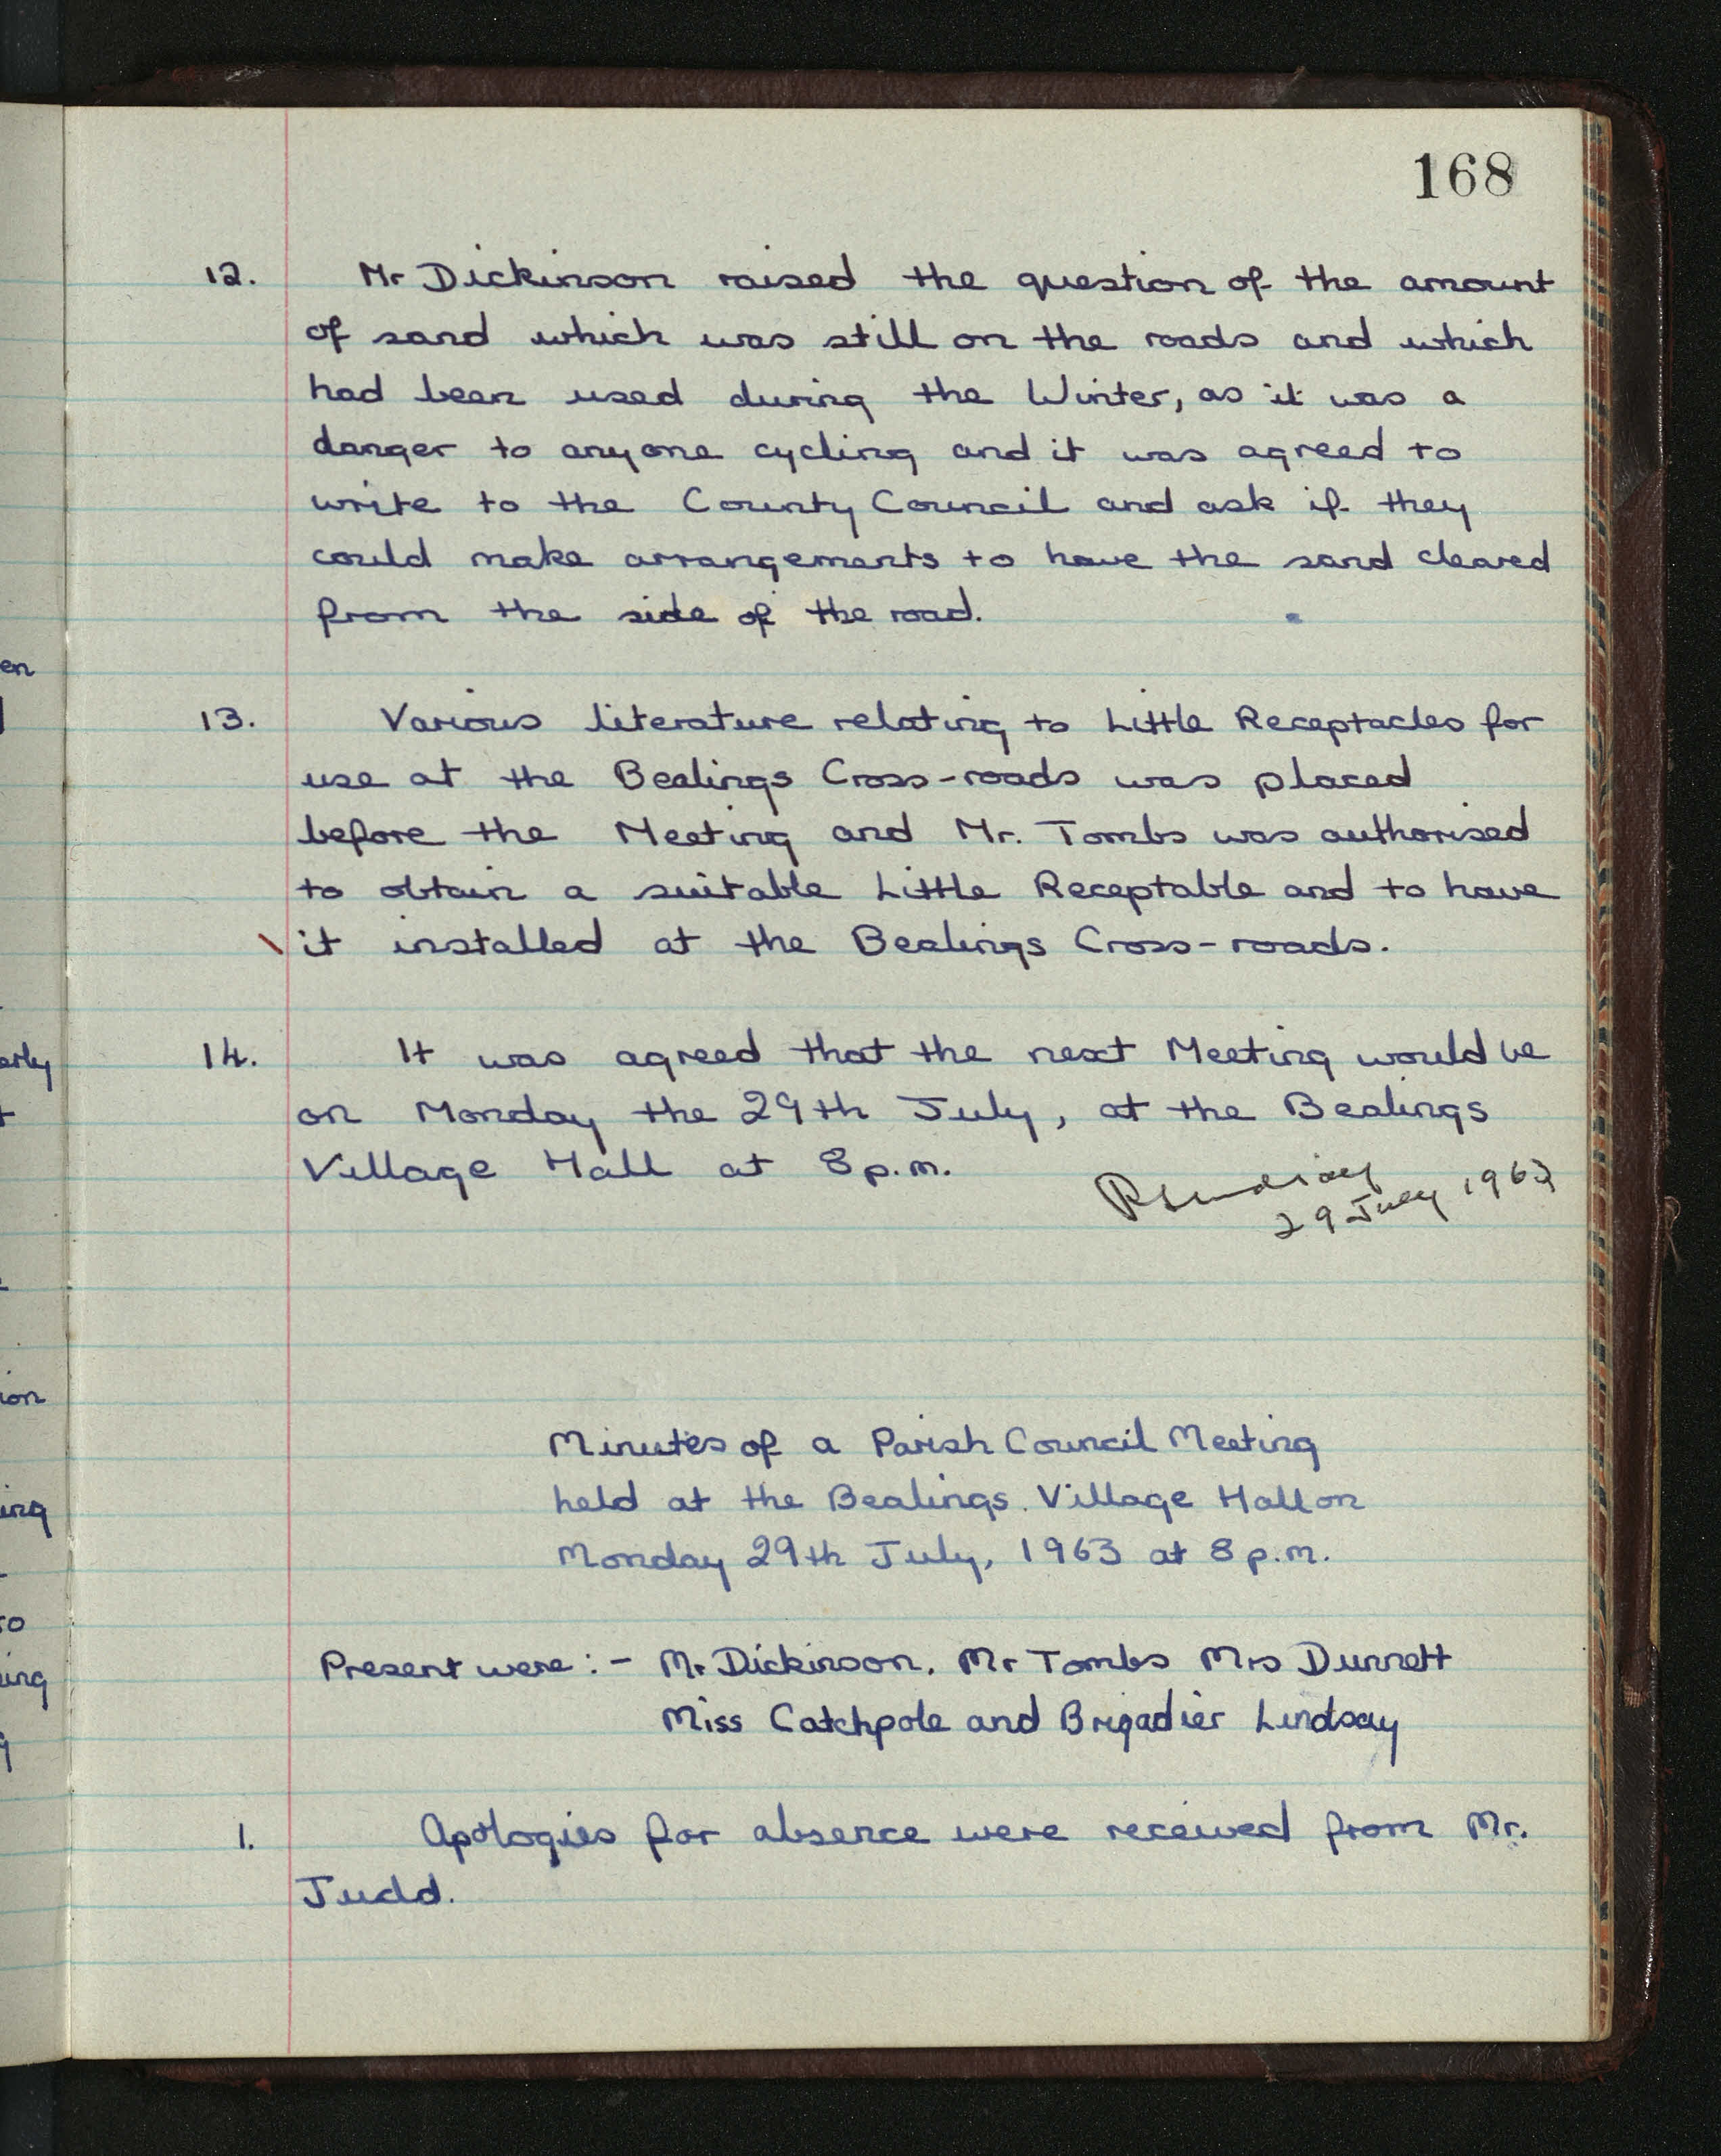 168
12. Mr Dickinson raised the question of the amount
of sand which was still on the roads and which
had been used during the Winter, as it was a
danger to anyone cycling and it was agreed to
write to the County Council and ask if they
could make arrangements to have the sand cleared
from the side of the road.
13. Various literature relating to Little Receptacles for
use at the Bealings Cross-roads was placed
before the Meeting and Mr. Tombs was authorised
to obtain a suitable Little Receptable and to have
it installed at the Bealings Cross-roads.
14. It was agreed that the next Meeting would be
on Monday the 29th July, at the Bealings
Village Hall at 8 p.m.
29 July 1963
Minutes of a Parish Council Meeting
held at the Bealings Village Hall on
Monday 29th July, 1963 at 8 p.m.
Present were :- Mr Dickinson, Mr Tombs Mrs Durrett
Miss Catchpole and Brigadier Lindsay
1. Apologies for absence were received from Mr.
Judd.